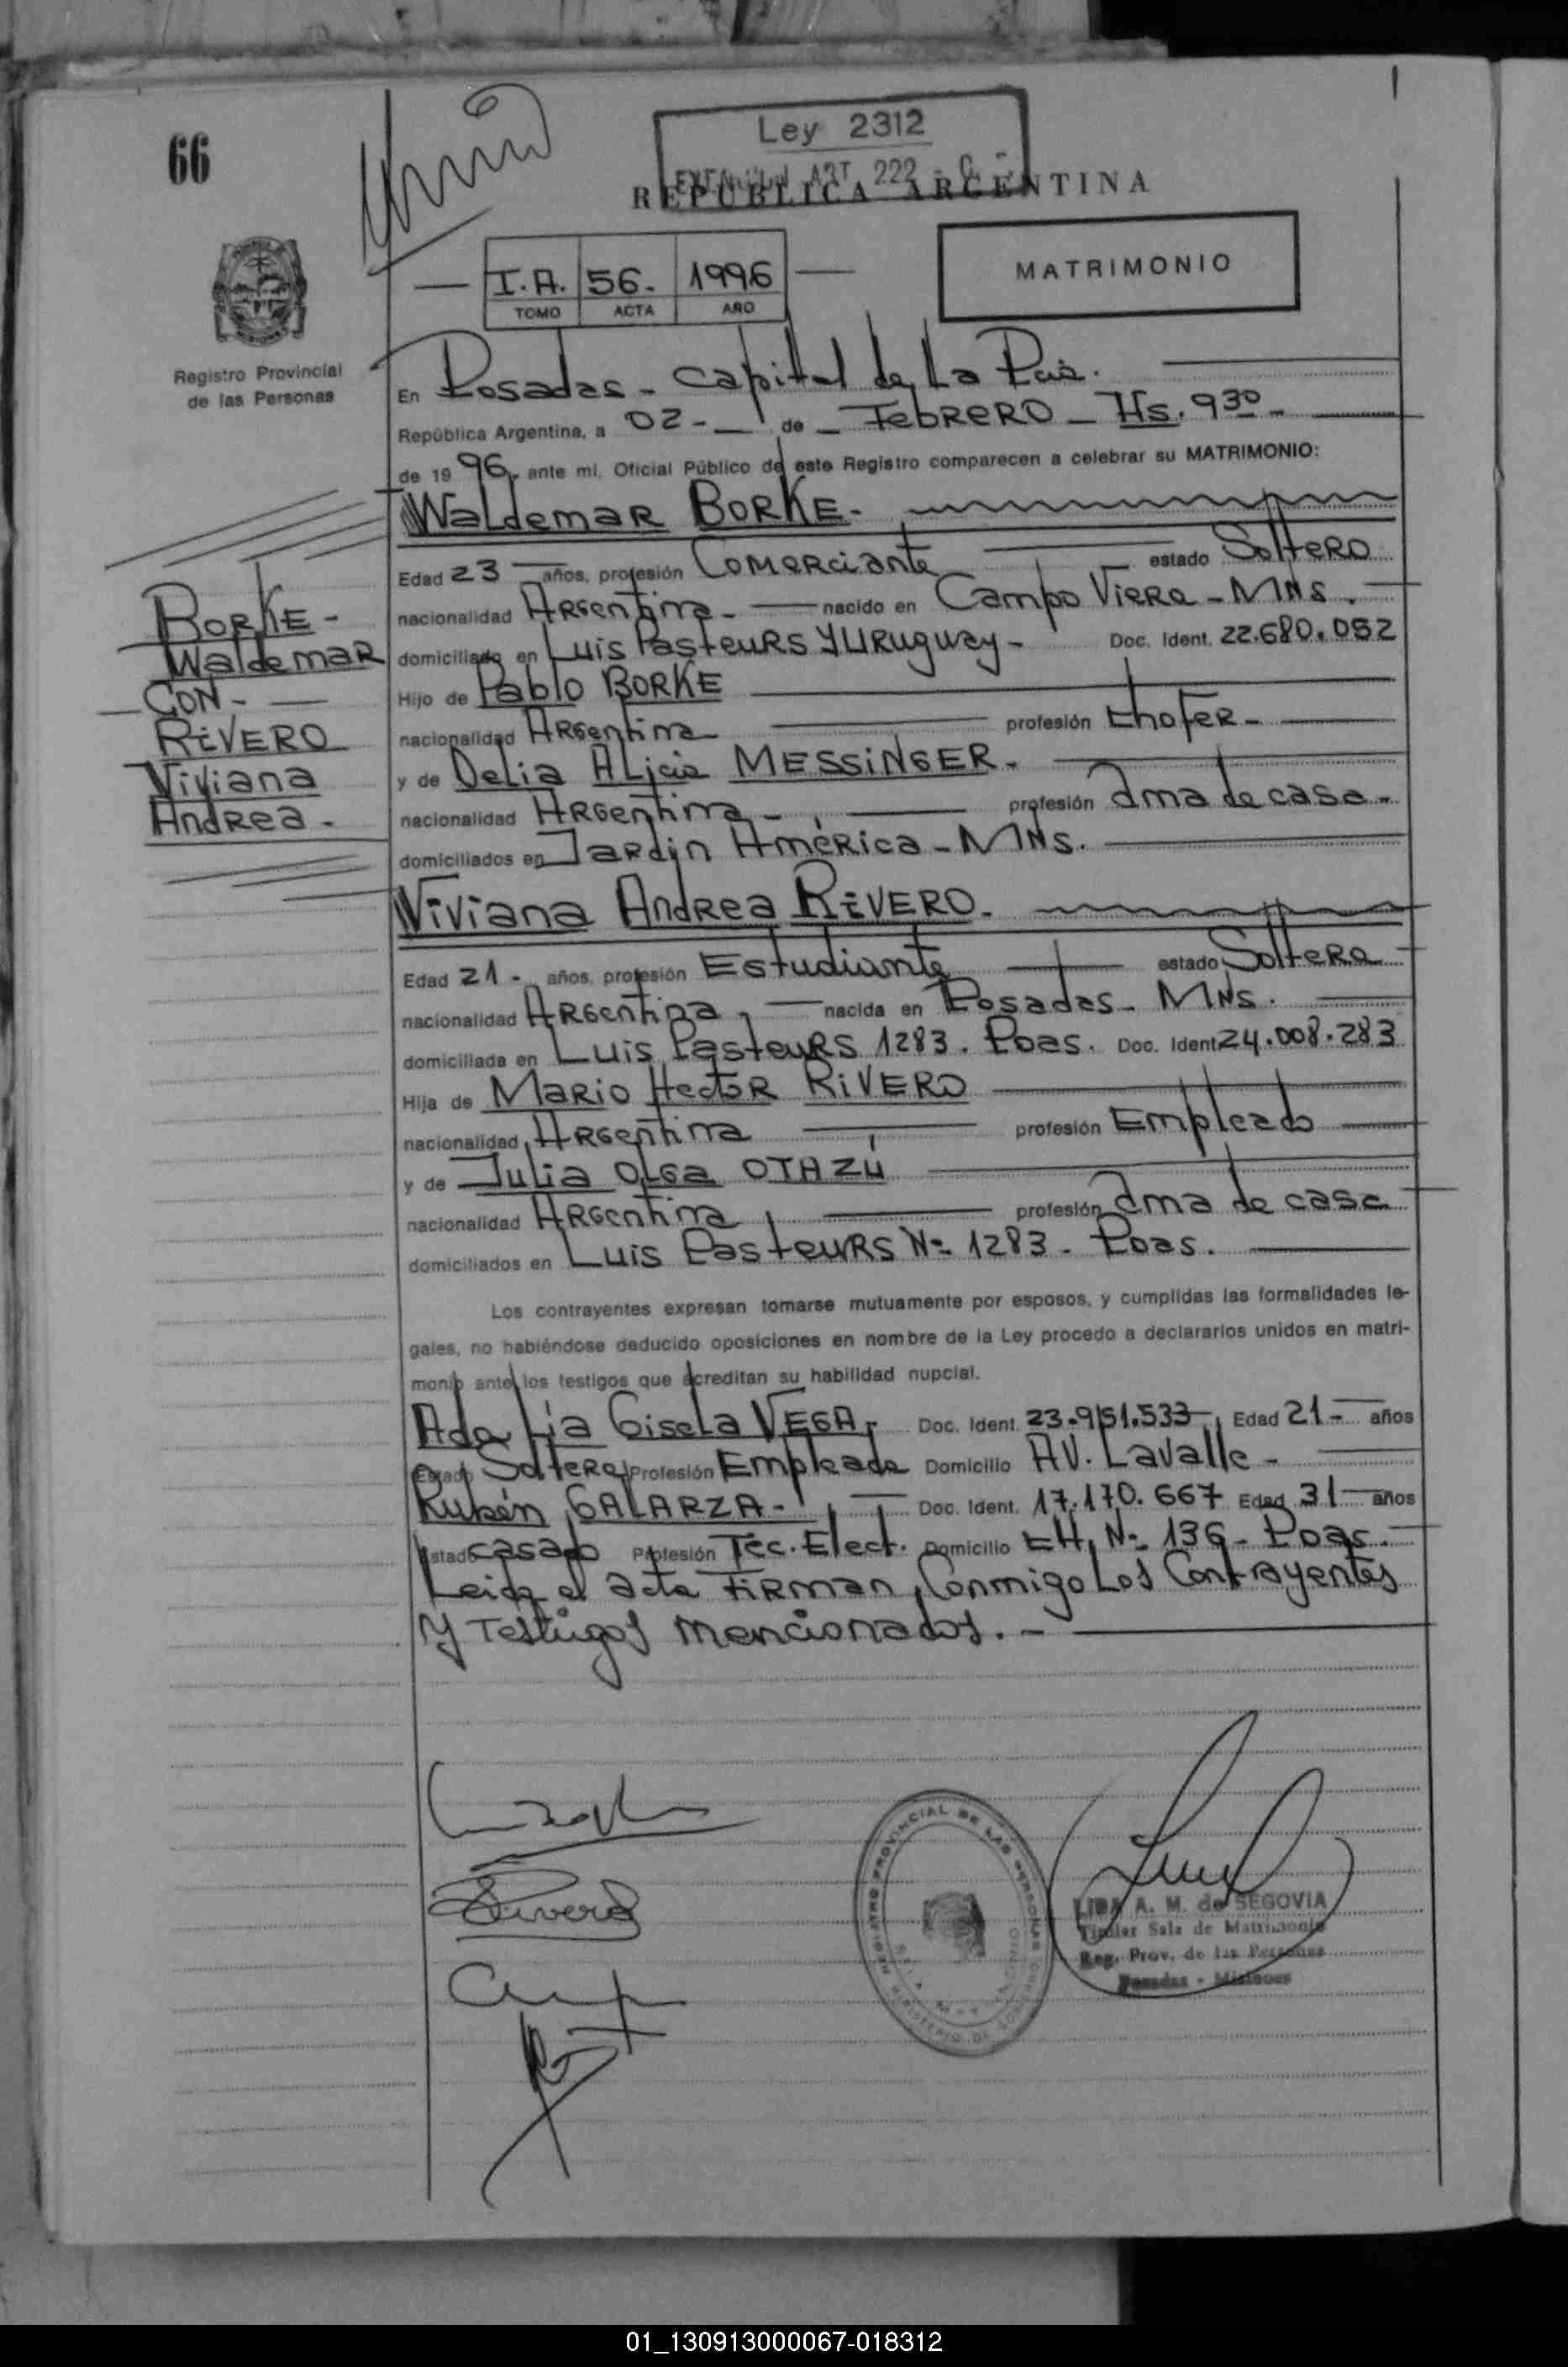 66
Ley 2312
ART 222 - C.
REPUBLICA ARGENTINA
I.A. 56. 1996
TOMO ACTA AÑO
MATRIMONIO
Registro Provincial
de las Personas
En Posadas - Capital de La Pcia.
República Argentina, a 02 - de - FebRERO - Hs. 9 30 -
de 19 96, ante mí, Oficial Público de este Registro comparecen a celebrar su MATRIMONIO:
Waldemar BORKE.
Edad 23 años, profesión Comerciante estado Soltero
nacionalidad Argentina - nacido en Campo Viera - MNS.
domiciliado en Luis PasteuRS Y URuguay - Doc. Ident. 22.680.052
Hijo de Pablo BORKE
nacionalidad Argentina profesión Chofer -
y de Delia Alicia MESSiNGER -
nacionalidad Argentina - profesión ama de casa -
domiciliados en Jardín América - MNS.
BORKE -
Waldemar
CON -
RiVERO
Viviana
Andrea -
Viviana Andrea RiVERO.
Edad 21 - años, profesión Estudiante estado Soltera
nacionalidad Argentina - nacida en Posadas - MNS.
domiciliada en Luis PasteuRS 1283 . Poas. Doc. Ident. 24.008.283
Hija de Mario Hector RiVERO
nacionalidad Argentina profesión Empleado
y de Julia Olga OTAZÚ
nacionalidad Argentina profesión ama de casa
domiciliados en Luis PasteuRS Nº 1283 - Poas.
Los contrayentes expresan tomarse mutuamente por esposos, y cumplidas las formalidades le-
gales, no habiéndose deducido oposiciones en nombre de la Ley procedo a declararlos unidos en matri-
monio ante los testigos que acreditan su habilidad nupcial.
Ada Lia Gisela VEGA - Doc. Ident. 23.951.533 Edad 21 - años
Estado Soltera Profesión Empleada Domicilio AV. Lavalle -
Rubén GALARZA - Doc. Ident. 17.170.667 Edad 31 años
Estado casado Profesión Tec. Elect. Domicilio CH. Nº 136 - Poas.
Leida el acta FiRman Conmigo Los Contrayentes
y Testigos mencionados. -
Rivero
REGISTRO PROVINCIAL DE LAS PERSONAS
MINISTERIO DE GOBIERNO
LIDA A. M. de SEGOVIA
Titular Sala de Matrimonio
Reg. Prov. de las Personas
Posadas - Misiones
01_130913000067-018312